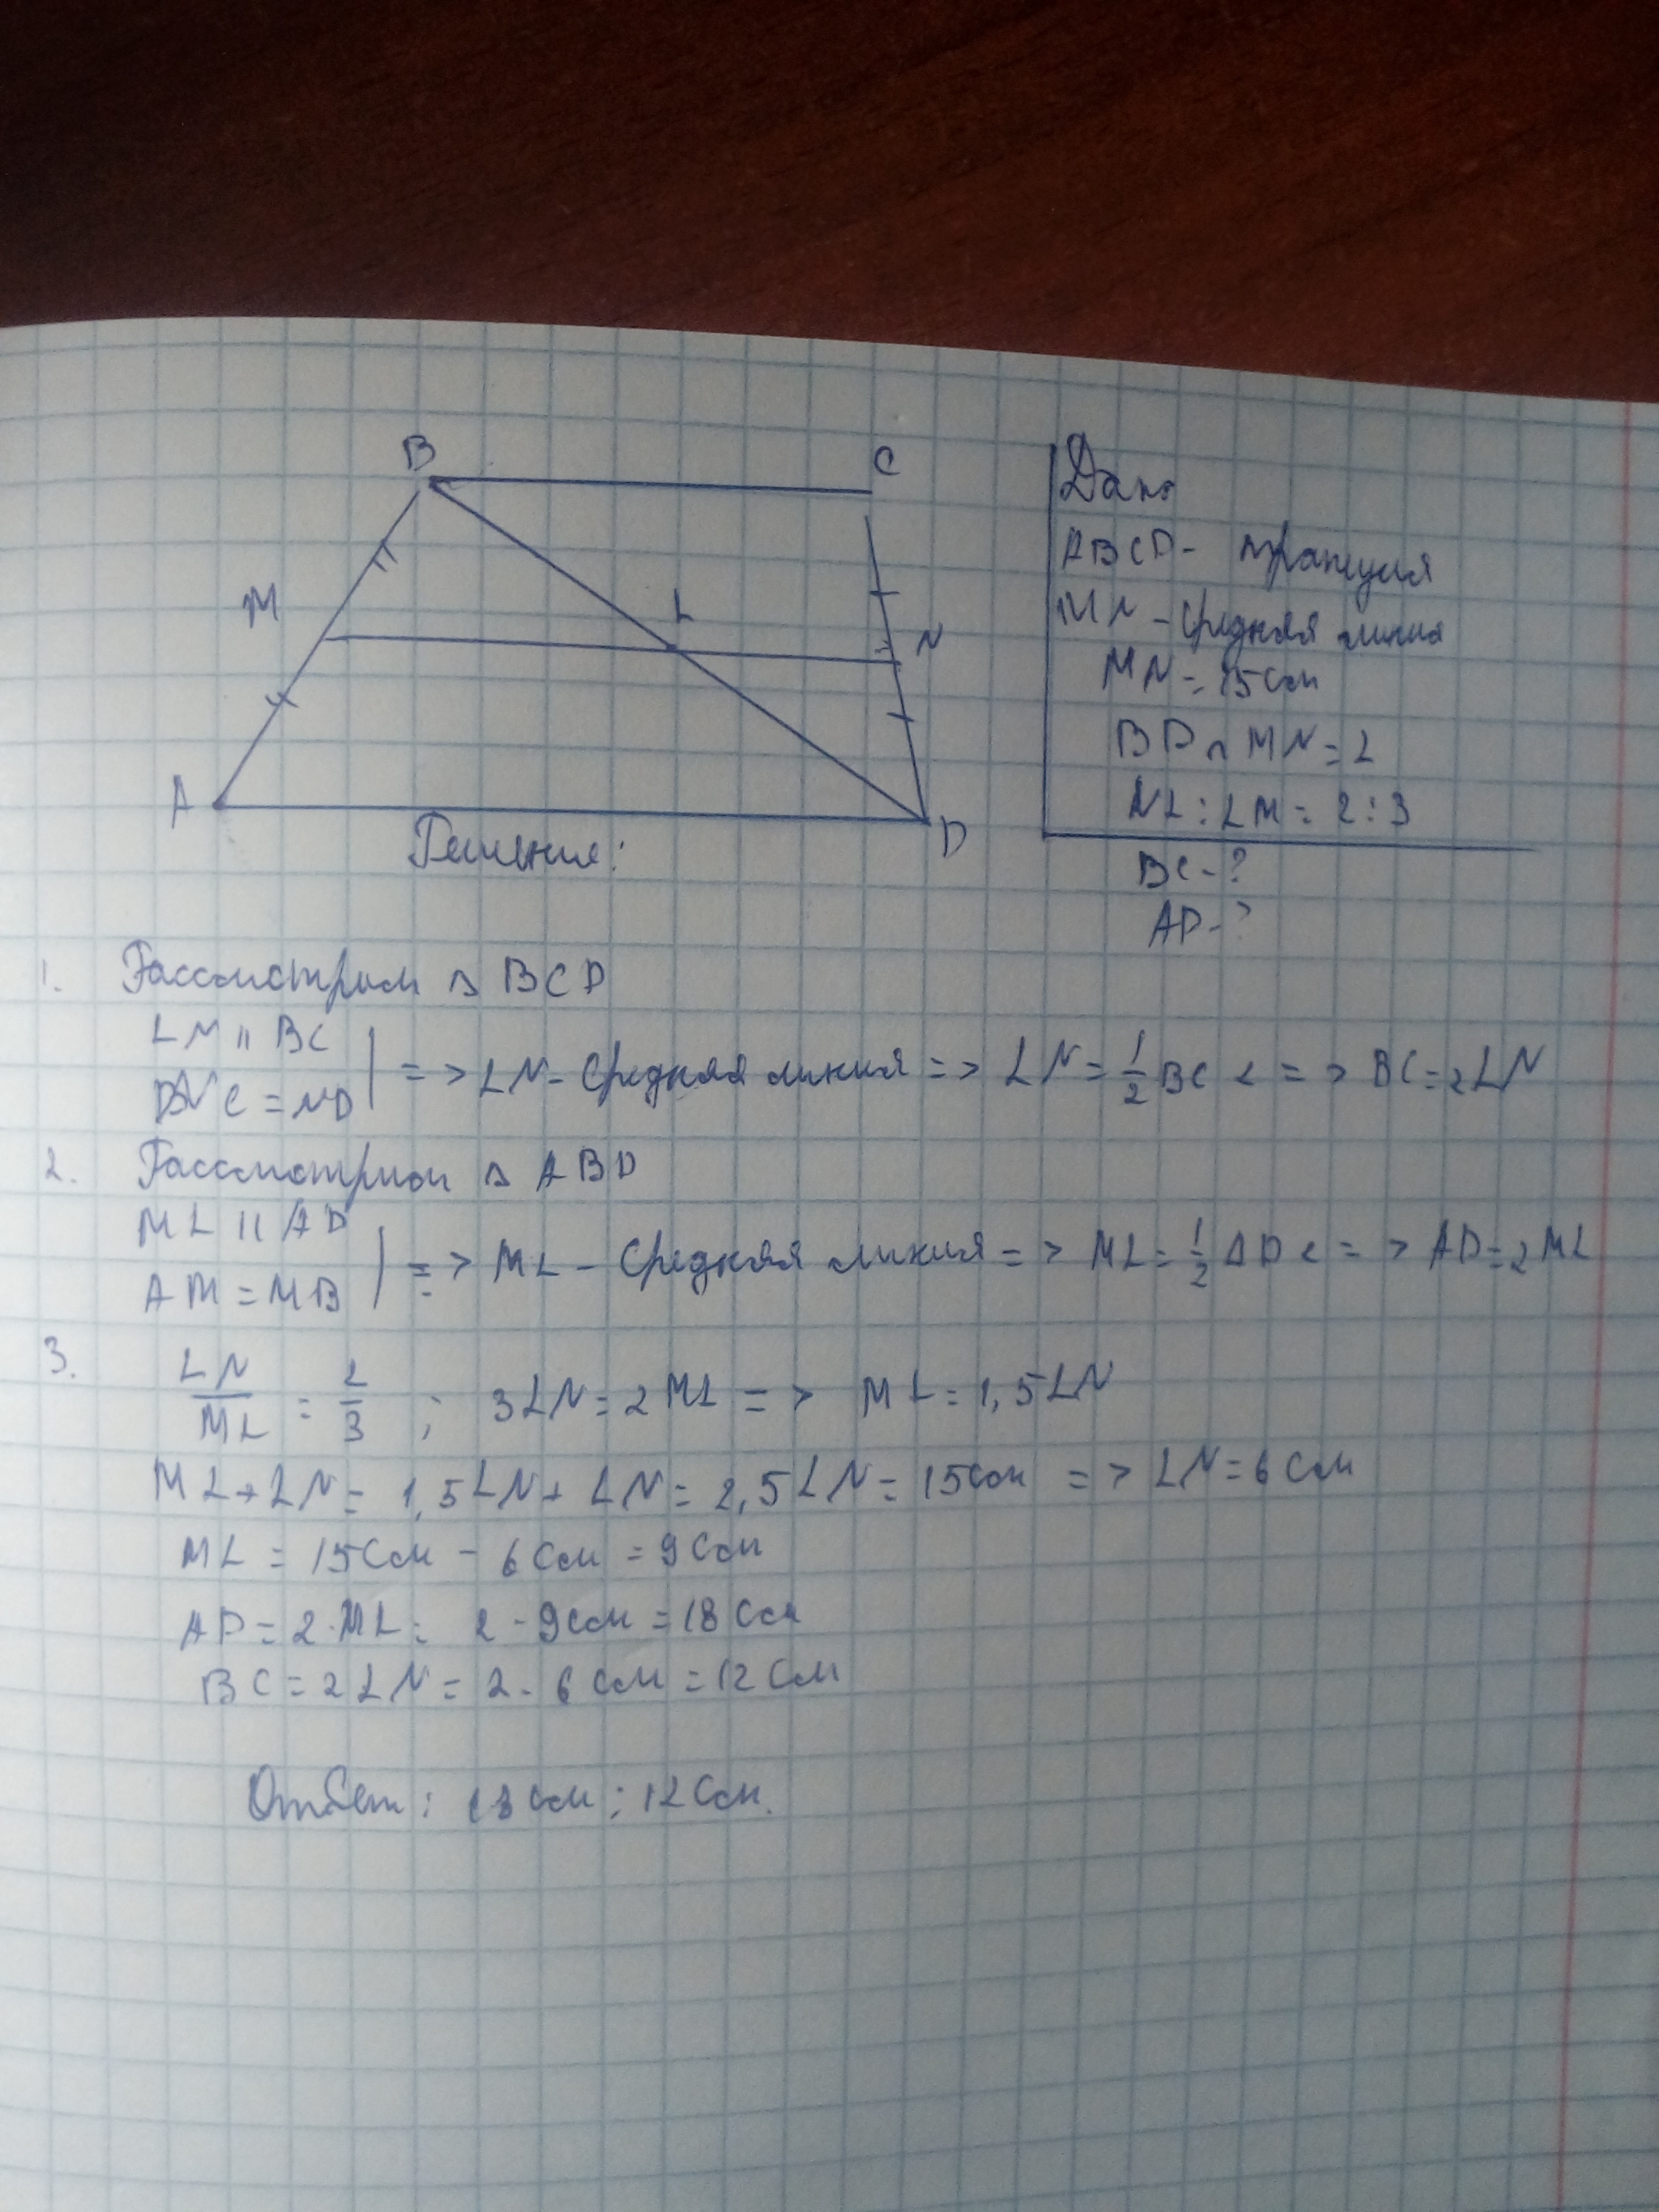 B
C
M
L
N
A
D
Дано
ABCD - трапеция
MN - средняя линия
MN = 15 см
BD ∩ MN = L
NL : LM = 2 : 3
BC - ?
AD - ?
Решение:
1. Рассмотрим △ BCD
LN || BC
NC = ND
=> LN - средняя линия => LN = 1/2 BC <=> BC = 2LN
2. Рассмотрим △ ABD
ML || AD
AM = MB
=> ML - средняя линия => ML = 1/2 AD <=> AD = 2ML
3. LN/ML = 2/3 ; 3LN = 2ML => ML = 1,5LN
ML + LN = 1,5LN + LN = 2,5LN = 15см => LN = 6 см
ML = 15см - 6см = 9см
AD = 2·ML = 2·9см = 18см
BC = 2LN = 2·6см = 12см
Ответ: 18см; 12см.